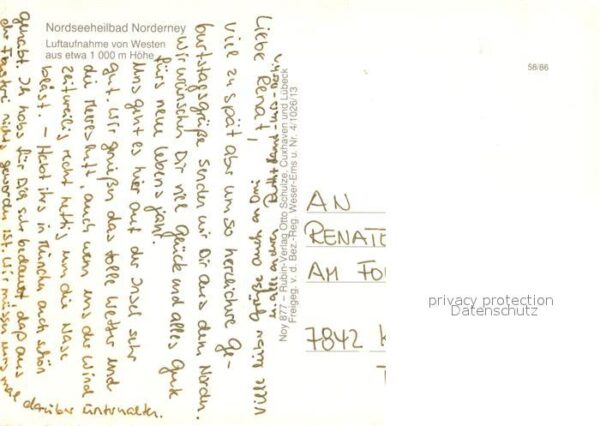 Nordseeheilbad Norderney
Luftaufnahme von Westen
aus etwa 1 000 m Höhe
58/86
Liebe Renat,
viel zu spät aber um so herzlichere Ge-
burtstagsgrüße senden wir Dir aus dem Norden.
Wir wünschen Dir viel Glück und alles Gute
fürs neue Lebensjahr!
Uns geht es hier auf der Insel sehr
gut. Wir genießen das tolle Wetter und
die Meeresluft, auch wenn uns der Wind
zeitweilig recht heftig um die Nase
bläst. – Habt ihr's in München auch schön
gehabt. Ich hab's für Dich sehr bedauert daß aus
der nichts geworden ist. Wir müssen uns mal
darüber unterhalten.
Viele liebe Grüße auch an Omi
u. alle anderen
Noy 877 – Rubin-Verlag Otto Schulze, Cuxhaven und Lübeck
Freigeg. v. d. Bez.-Reg. Weser-Ems u. Nr. 4/1026/13
AN
RENATE
AM FO
7842 K
privacy protection
Datenschutz